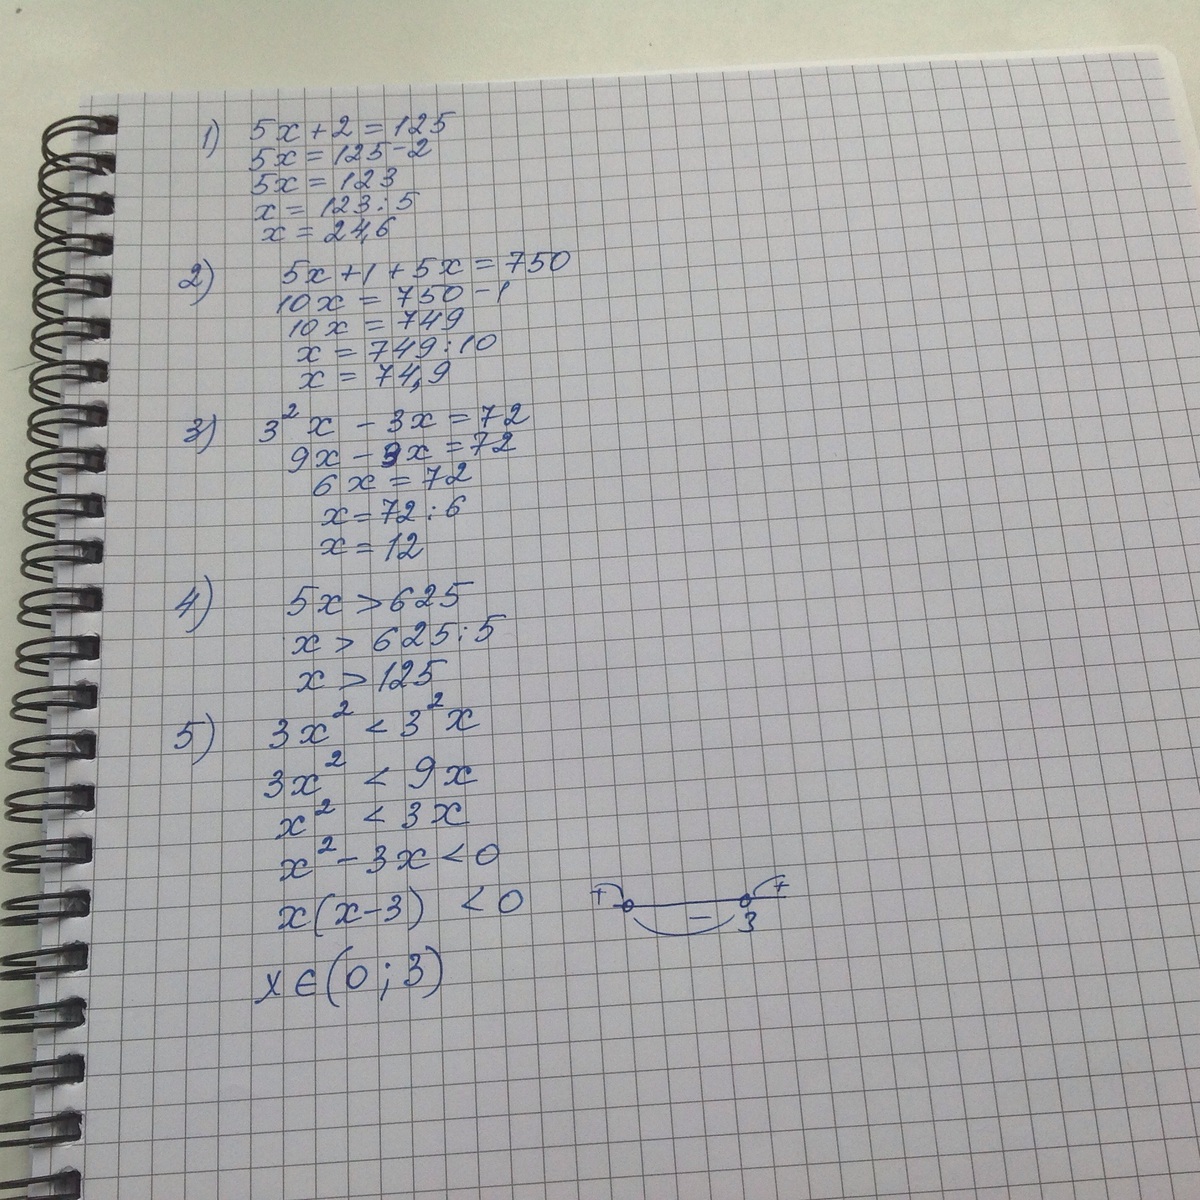 1) 5x + 2 = 125
5x = 125 - 2
5x = 123
x = 123 : 5
x = 24,6
2) 5x + 1 + 5x = 750
10x = 750 - 1
10x = 749
x = 749 : 10
x = 74,9
3) 3² x - 3x = 72
9x - 3x = 72
6x = 72
x = 72 : 6
x = 12
4) 5x > 625
x > 625 : 5
x > 125
5) 3x² < 3² x
3x² < 9x
x² < 3x
x² - 3x < 0
x(x-3) < 0
+ - +
3
x ∈ (0 ; 3)